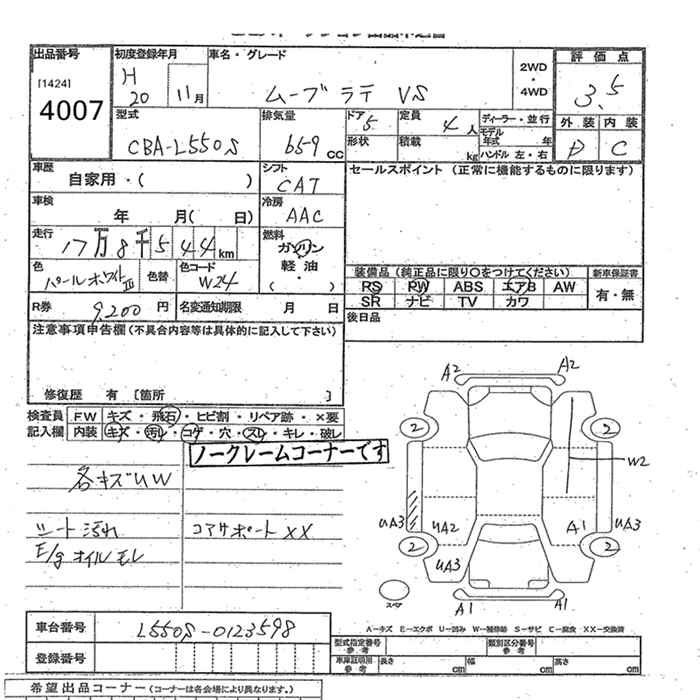 出品番号
[1424]
4007
初度登録年月
H
20
11月
車名・グレード
ムーブ ラテ VS
2WD
・
4WD
評価点
3.5
型式
CBA-L550S
排気量
659 cc
ドア
5
定員
4 人
ディーラー・並行
形状
積載
kg
モデル年式
年
ハンドル 左・右
外装
内装
D
C
車歴
自家用・( )
シフト
CAT
セールスポイント (正常に機能するものに限ります)
車検
年 月( 日)
冷房
AAC
走行
17万8千544km
燃料
ガソリン
軽油
( ・ )
色
パールホワイトIII
色替
色コード
W24
装備品 (純正品に限り○をつけてください)
新車保証書
RS PW ABS エアB AW
SR ナビ TV カワ
有・無
R券
9,200 円
名変通知期限
月 日
後日品
注意事項申告欄(不具合内容等は具体的に記入して下さい)
修復歴 有 [箇所 ]
検査員
記入欄
FW
キズ・飛石・ヒビ割・リペア跡・×要
内装
キズ・汚れ・コゲ・穴・スレ・キレ・破レ
ノークレームコーナーです
各キズUW
シート汚れ
コアサポートXX
E/gオイルモレ
A2
A2
2
2
W2
UA3
UA2
A1
UA3
2
UA3
2
スペア
A1
A1
A-キズ E-エクボ U-凹み W-補修跡 S-サビ C-腐食 XX-交換済
車台番号
L550S-0123598
登録番号
型式指定番号
参考
類別区分番号
参考
車庫証明用
参考
長さ
cm
幅
cm
高さ
cm
希望出品コーナー(コーナーは各会場により異なります。)